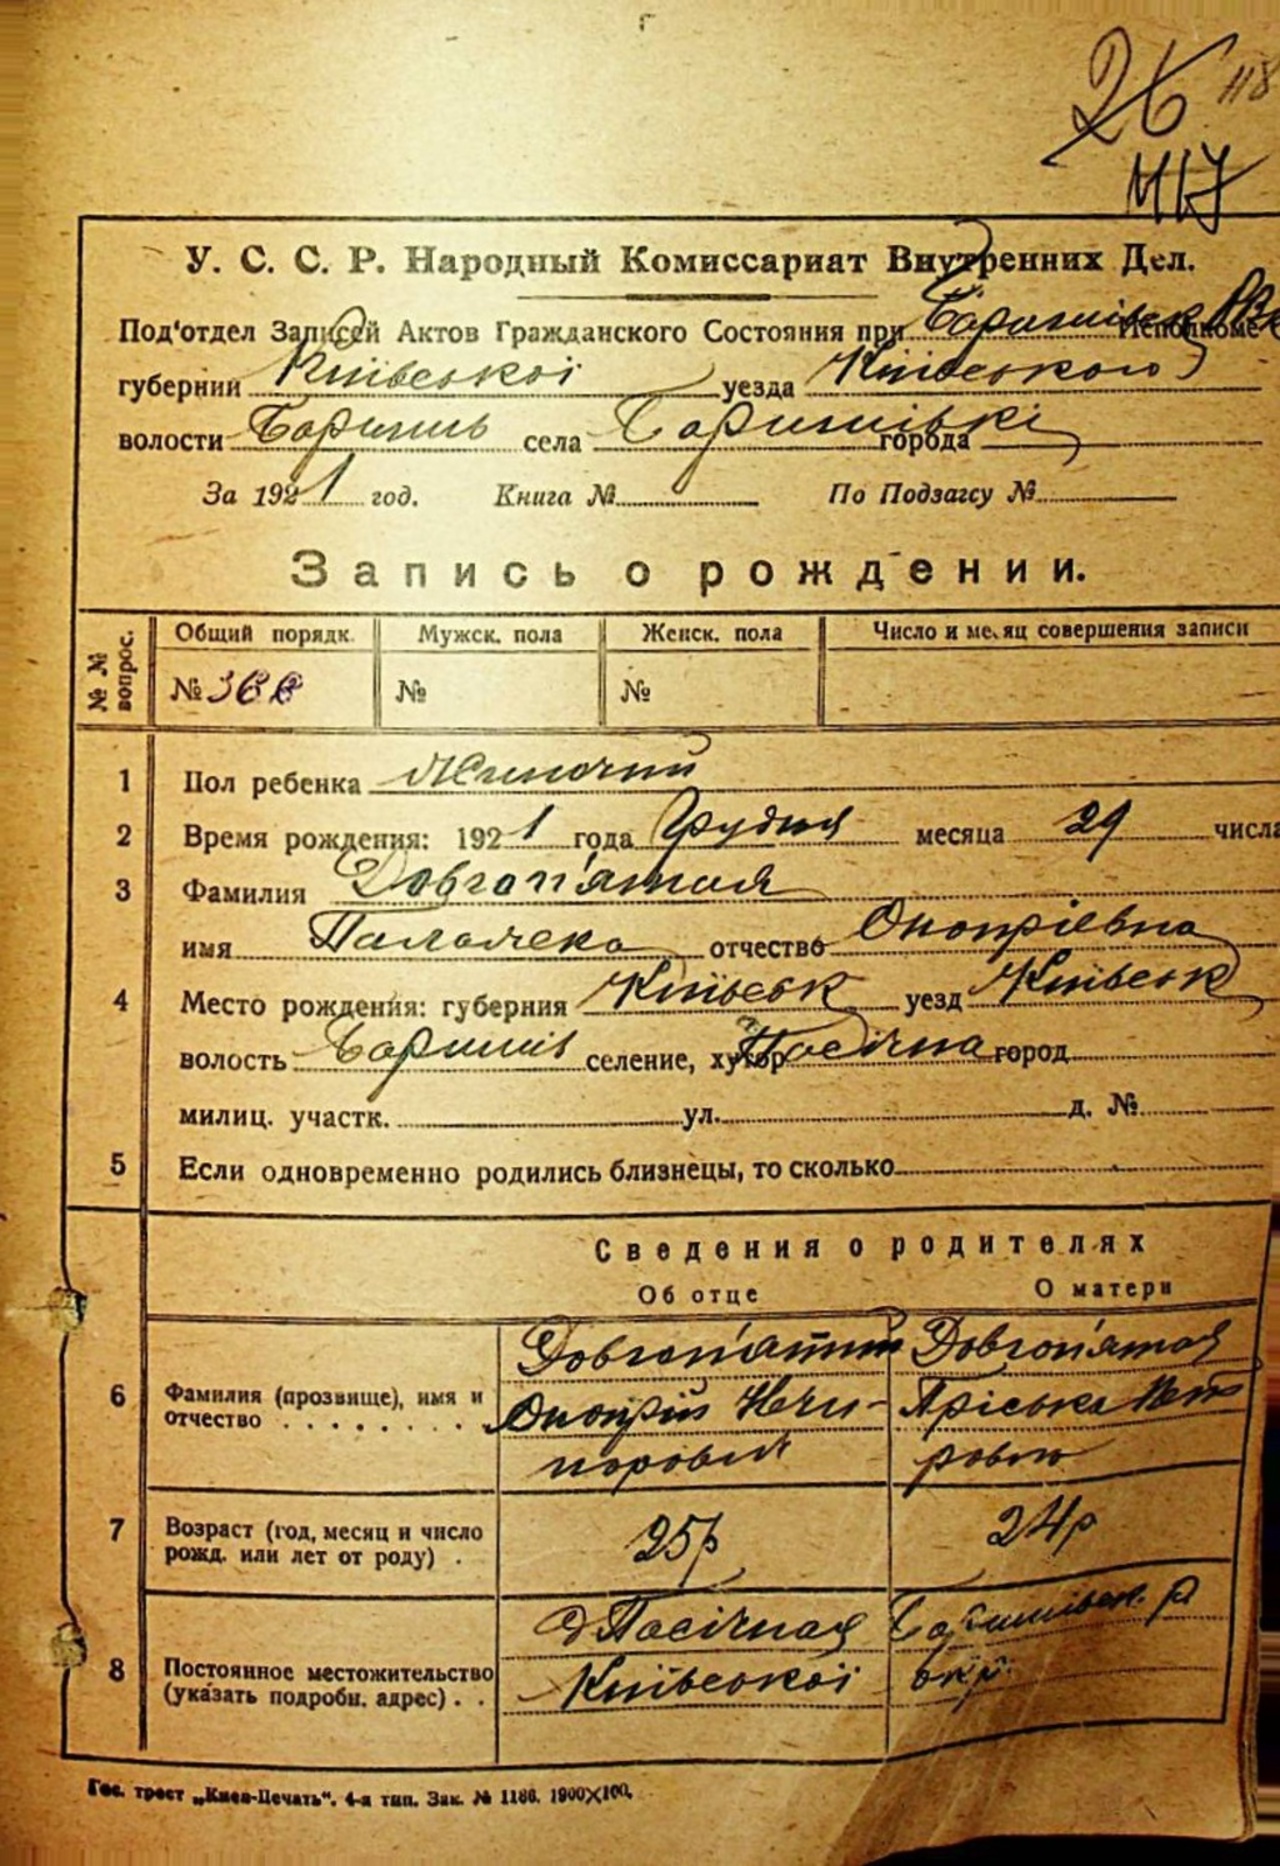 26 118
117
У. С. С. Р. Народный Комиссариат Внутренних Дел.
Под'отдел Записей Актов Гражданского Состояния при Баришівськ Исполкоме
губернии Київської уезда Київського
волости Бориш села Баришівкі города
За 1921 год. Книга № По Подзагсу №
Запись о рождении.
№ № вопрос. Общий порядк. Мужск. пола Женск. пола Число и месяц совершения записи
№ 366 № №
1 Пол ребенка Жиночий
2 Время рождения: 1921 года Грудня месяца 29 числа
3 Фамилия Доброп'ятная
имя отчество Оноприевна
4 Место рождения: губерния Київськ уезд Київськ
волость Баришів селение, хутор Пасічна город
милиц. участк. ул. д. №
5 Если одновременно родились близнецы, то сколько
Сведения о родителях
Об отце О матери
6 Фамилия (прозвище), имя и отчество Доброп'ятний Доброп'ятная
Оноприй Ничи- Пріська
поровий ровна
7 Возраст (год, месяц и число рожд. или лет от роду) . 25р 24р
8 Постоянное местожительство (указать подробн. адрес) . . Пасічная Баришівськ. р
Київської окр.
Гос. трест „Киев-Печать“. 4-я тип. Зак. № 1186. 1900×100.